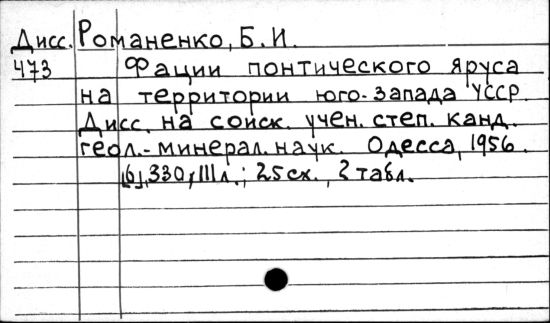 Дисс. Романенко, Б.И.
473 Фации понтического яруса
на территории юго-запада УССР.
Дисс. на соиск. учен. степ. канд.
геол.-минерал. наук. Одесса, 1956.
[6], 330, III л.; 25 сх., 2 табл.